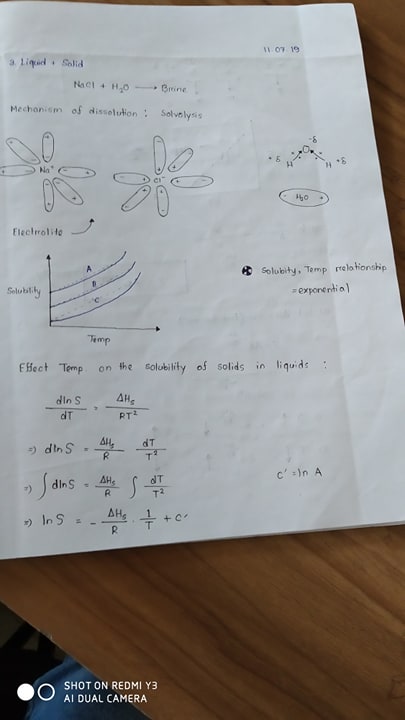 11 07 19
3. Liquid + Solid
NaCl + H₂O ⟶ Brine
Mechanism of dissolution : Solvolysis
Na⁺
Cl⁻
-δ
O
+δ H H +δ
- H₂O +
Electrolite
Solubility
A
B
C
Temp
Solubity, Temp rrelationship
= exponential
Effect Temp. on the solubility of solids in liquids :
dln S / dT = ΔHs / RT²
⇒ dln S = ΔHs / R dT / T²
⇒ ∫ dln S = ΔHs / R ∫ dT / T²
c' = ln A
⇒ ln S = - ΔHs / R . 1 / T + c'
SHOT ON REDMI Y3
AI DUAL CAMERA